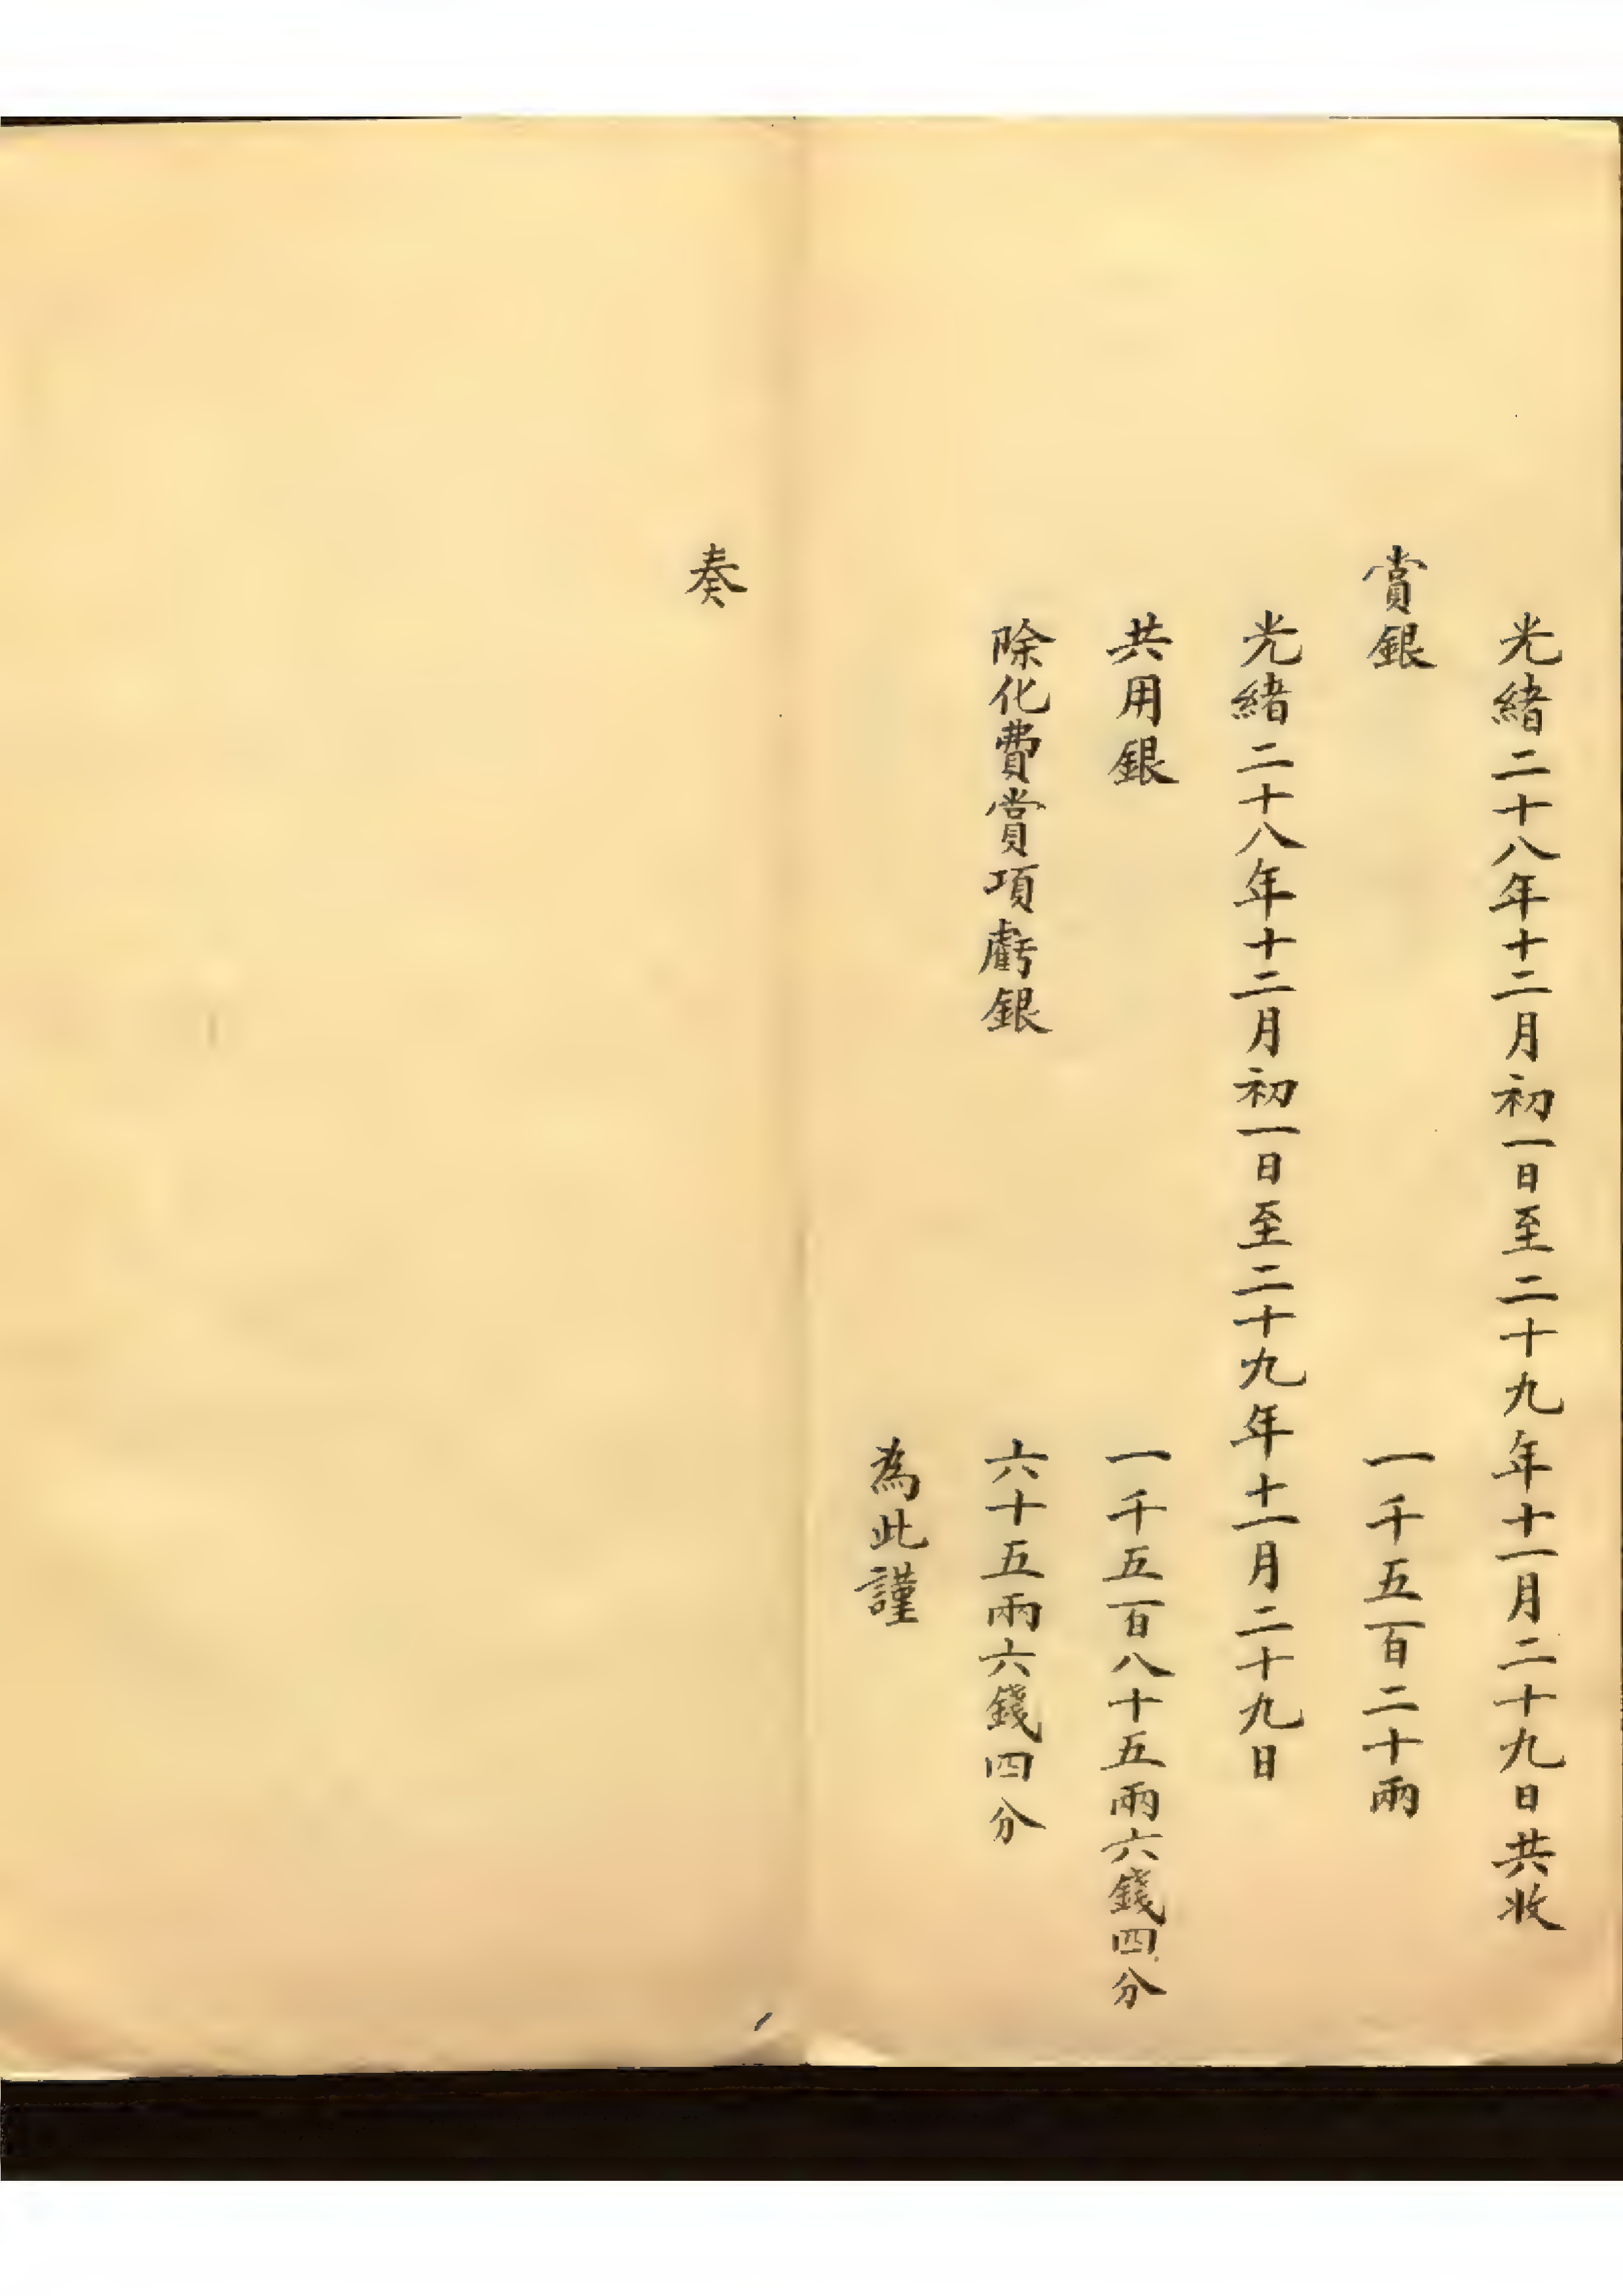 光緒二十八年十二月初一日至二十九年十一月二十九日共收
賞銀 一千五百二十兩
光緒二十八年十二月初一日至二十九年十一月二十九日
共用銀 一千五百八十五兩六錢四分
除化費賞項虧銀 六十五兩六錢四分
為此謹
奏